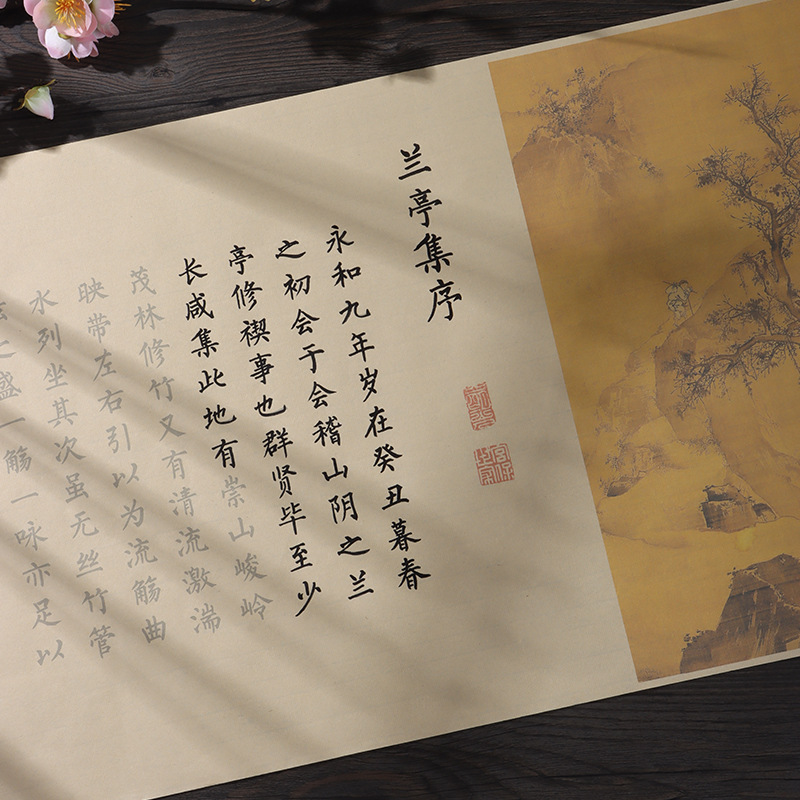 兰亭集序
永和九年岁在癸丑暮春
之初会于会稽山阴之兰
亭修禊事也群贤毕至少
长咸集此地有崇山峻岭
茂林修竹又有清流激湍
映带左右引以为流觞曲
水列坐其次虽无丝竹管
之盛一觞一咏亦足以
宫保世家